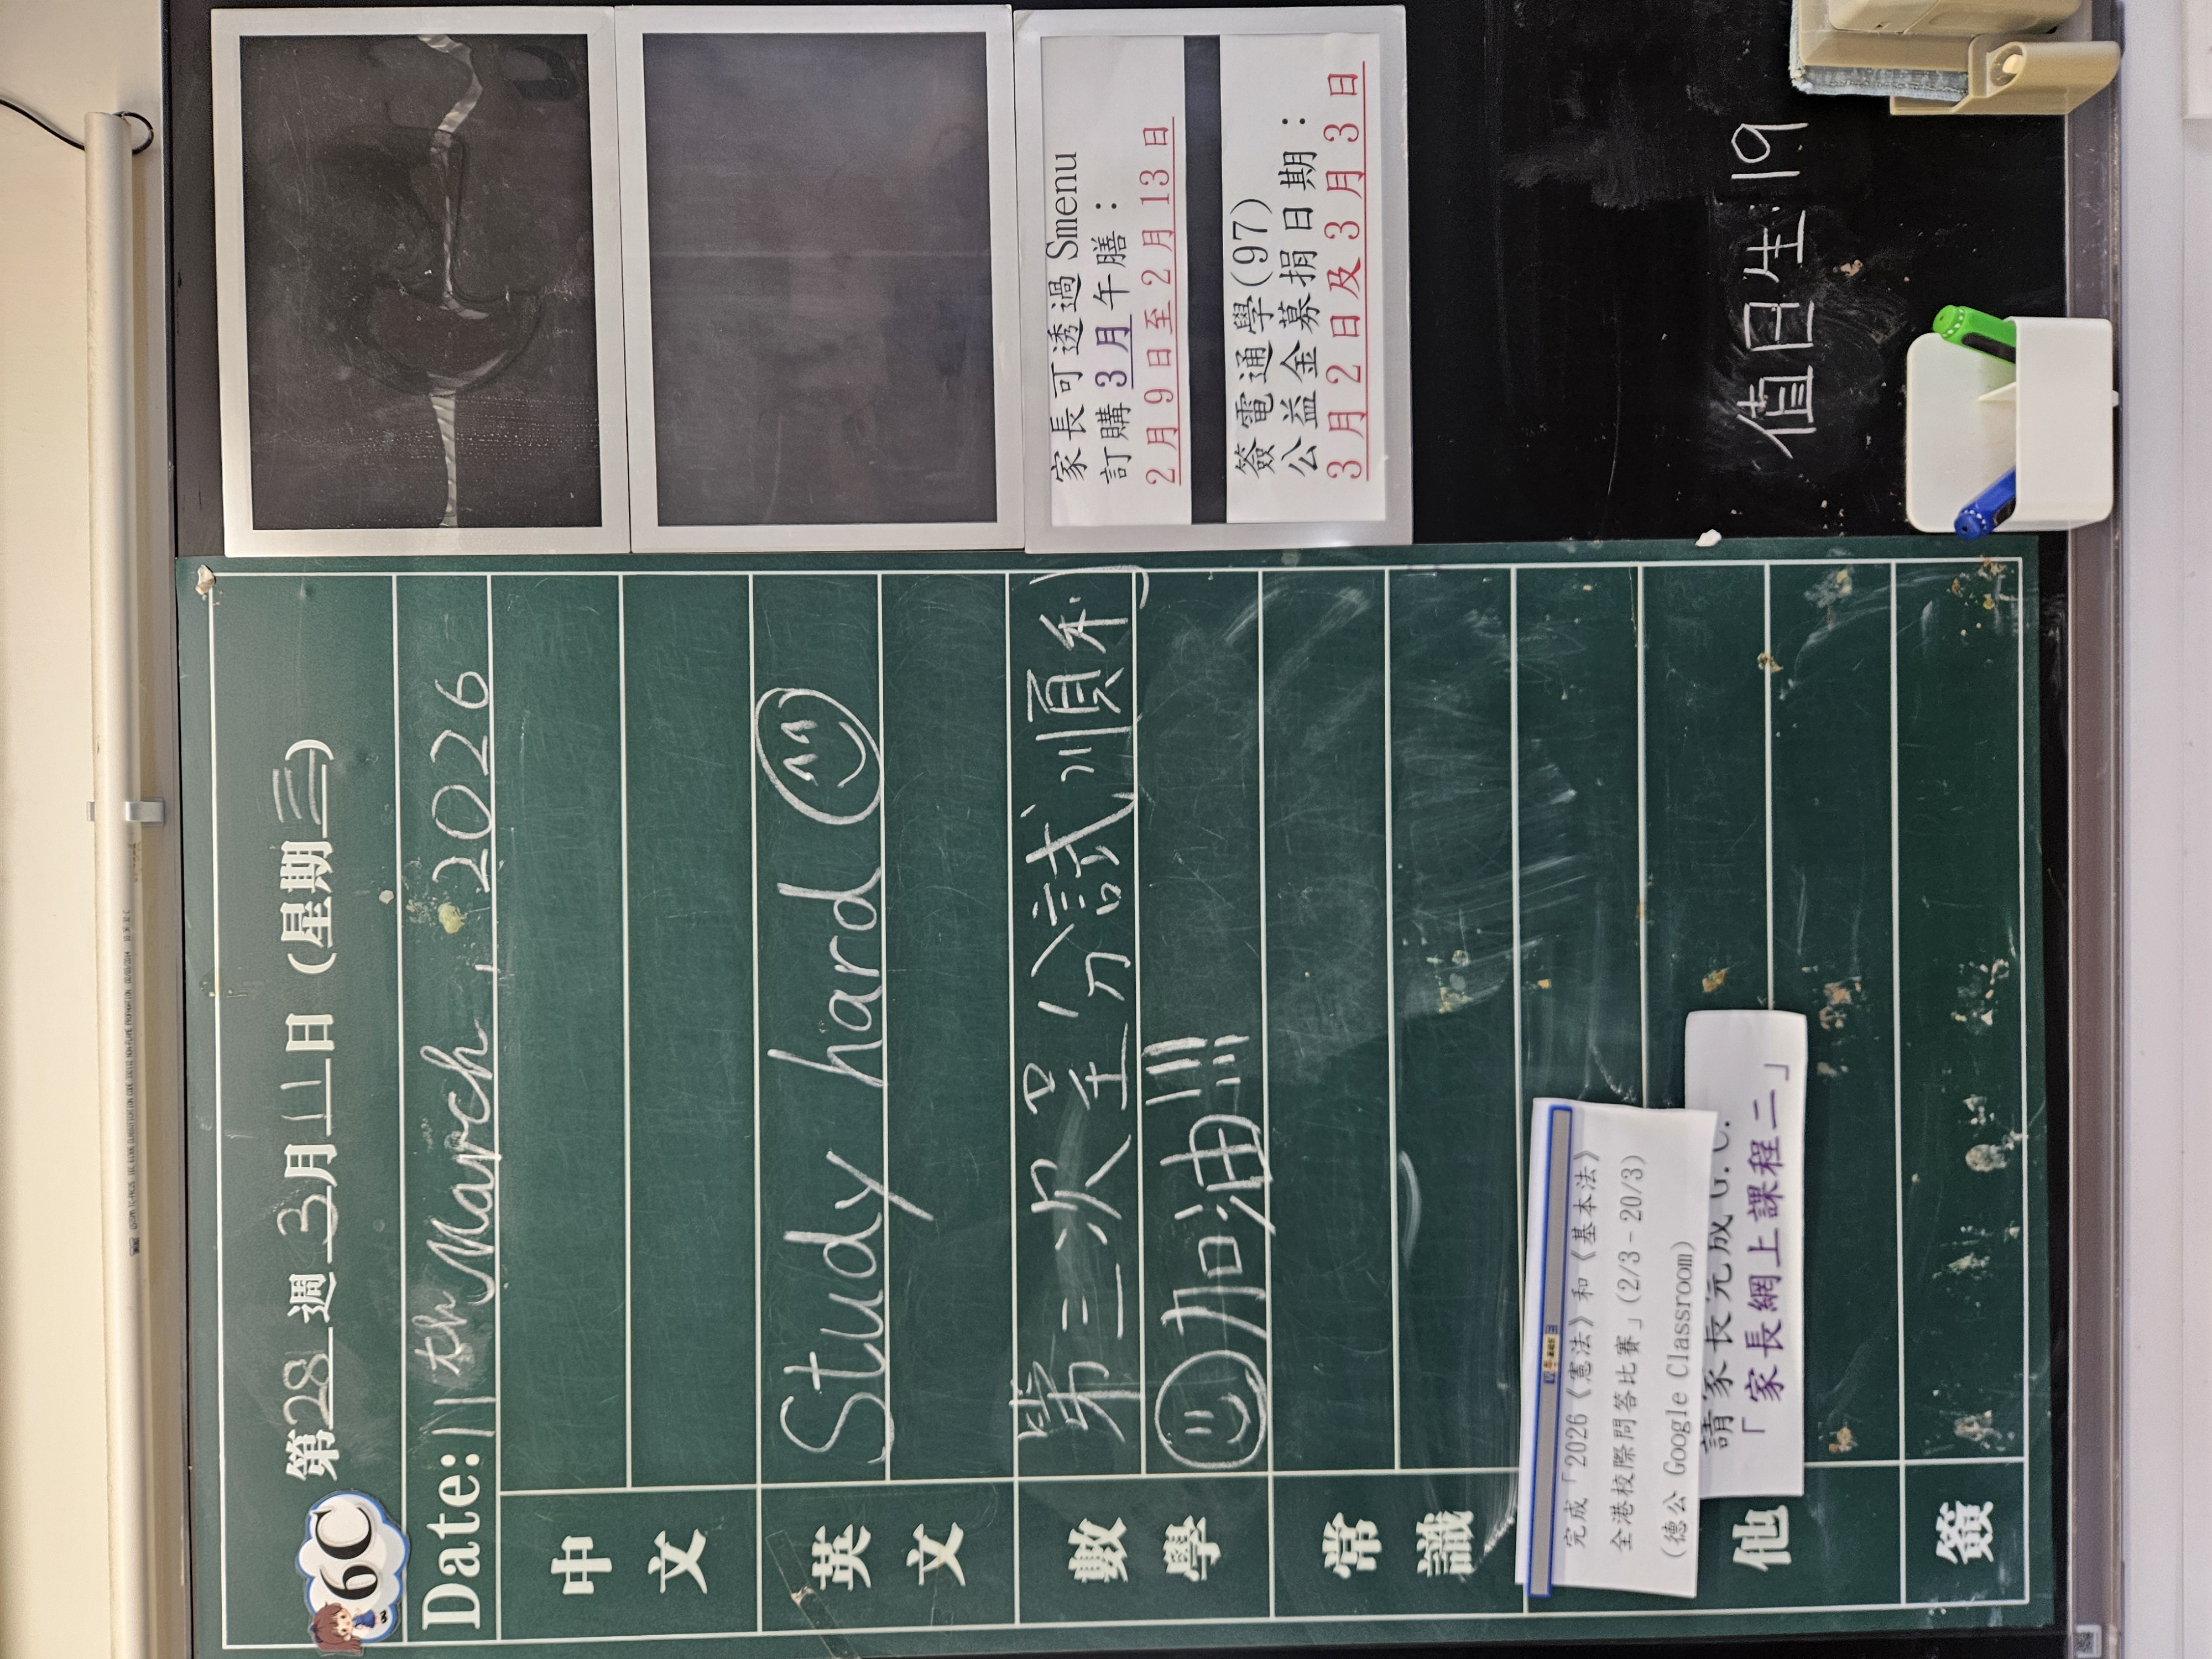 6C
第28週3月11日(星期三)
Date: 11th March, 2026
中文
英文
Study hard
數學
第三次呈分試順利
加油!!!
常識
完成「2026《憲法》和《基本法》
全港校際問答比賽」(2/3-20/3)
(德公 Google Classroom)
請家長完成G.C.
「家長網上課程二」
他
簽
家長可透過Smenu
訂購3月午膳:
2月9日至2月13日
簽電通學(97)
公益金募捐日期:
3月2日及3月3日
值日生:19